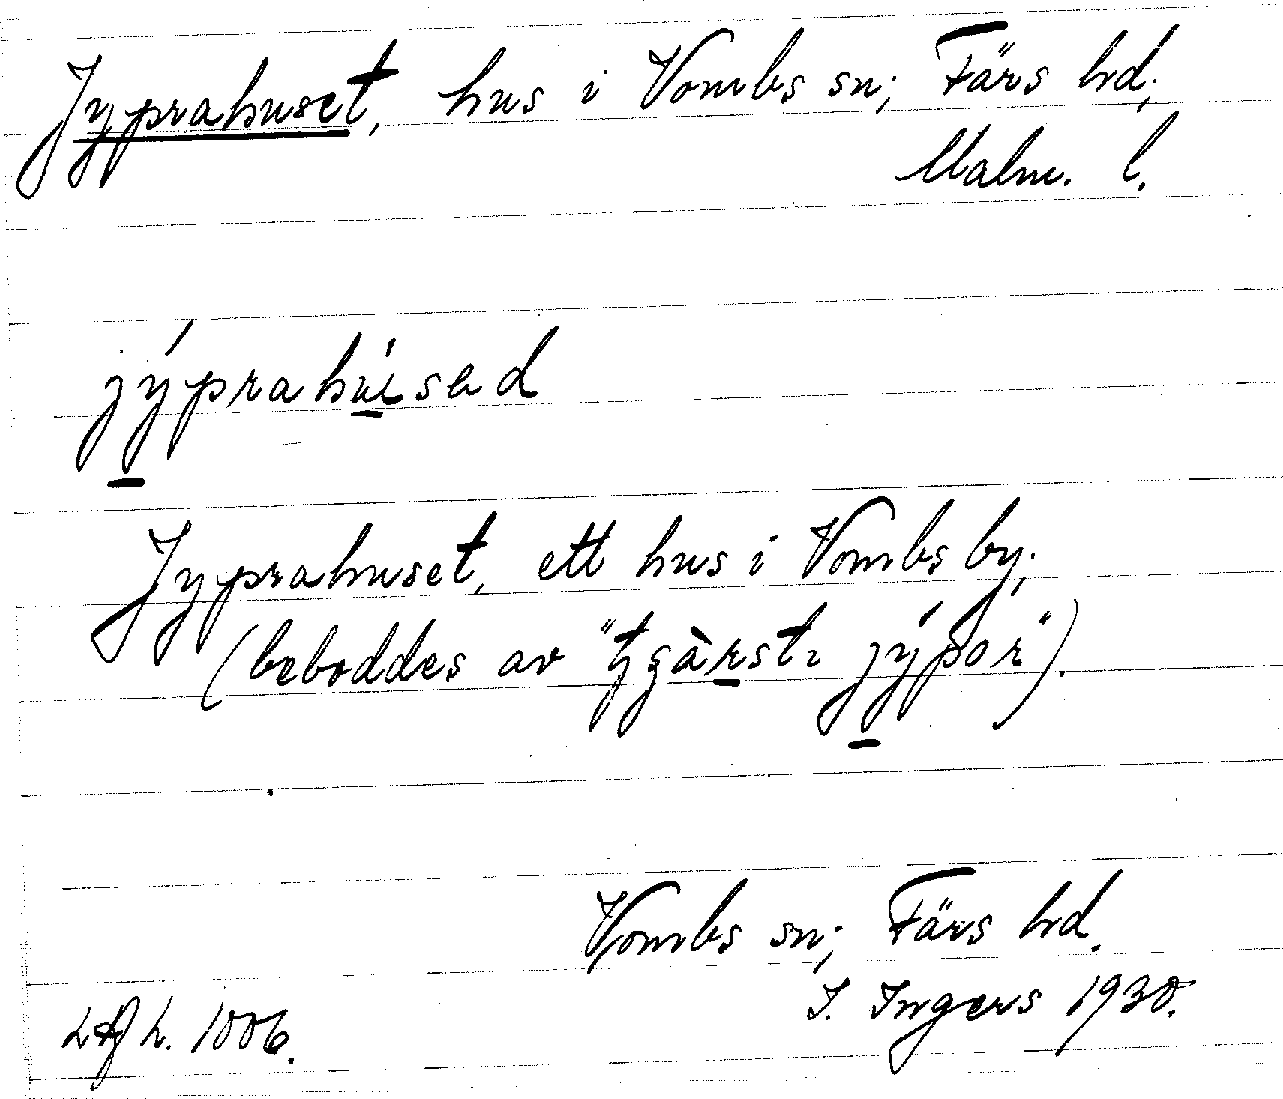 Jyprahuset, hus i Vombs sn; Färs hd,
Malm. l.
jýprahúsad
Jyprahuset, ett hus i Vombs by;
(beboddes av "jýpor").
Vombs sn; Färs hd.
I. Ingers 1930.
h. 1006.